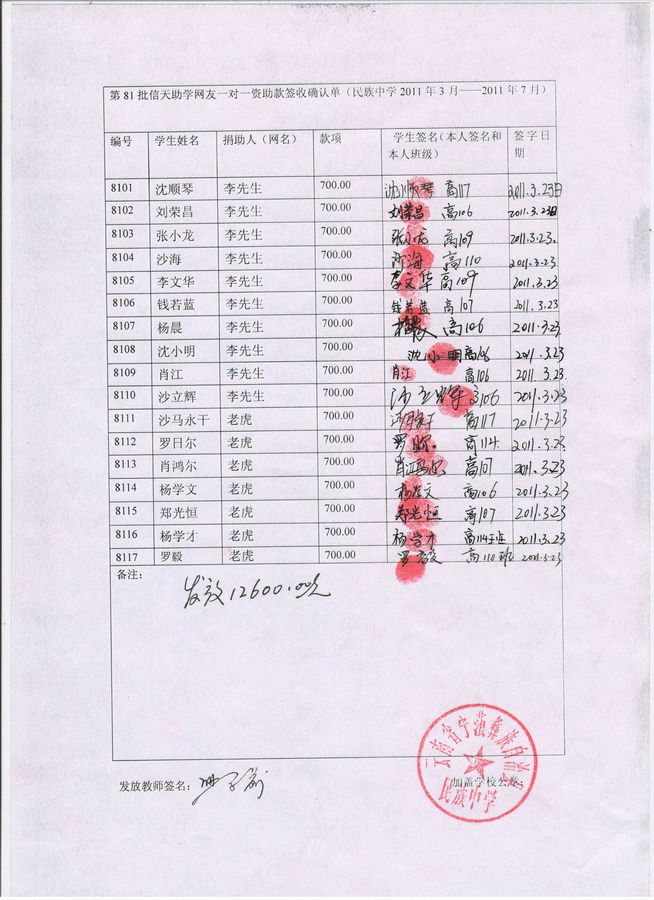 第81批信天助学网友一对一资助款签收确认单（民族中学2011年3月——2011年7月）
编号 学生姓名 捐助人（网名） 款项 学生签名（本人签名和本人班级） 签字日期
8101 沈顺琴 李先生 700.00 沈顺琴 高117 2011.3.23日
8102 刘荣昌 李先生 700.00 刘荣昌 高106 2011.3.23日
8103 张小龙 李先生 700.00 张小龙 高109 2011.3.23.
8104 沙海 李先生 700.00 沙海 高110 2011.3.23
8105 李文华 李先生 700.00 李文华 高109 2011.3.23
8106 钱若蓝 李先生 700.00 钱若蓝 高107 2011.3.23
8107 杨晨 李先生 700.00 杨晨 高106 2011.3.23
8108 沈小明 李先生 700.00 沈小明 高106 2011.3.23
8109 肖江 李先生 700.00 肖江 高106 2011.3.23.
8110 沙立辉 李先生 700.00 沙立辉 高106 2011.3.23
8111 沙马永干 老虎 700.00 高117 2011.3.23
8112 罗日尔 老虎 700.00 高114 2011.3.23
8113 肖鸿尔 老虎 700.00 肖鸿尔 高107 2011.3.23
8114 杨学文 老虎 700.00 杨学文 高106 2011.3.23
8115 郑光恒 老虎 700.00 郑光恒 高107 2011.3.23
8116 杨学才 老虎 700.00 杨学才 高114班 2011.3.23
8117 罗毅 老虎 700.00 罗毅 高110班 2011.3.23
备注：
发放12600.00元
发放教师签名：
加盖学校公章：
云南省宁蒗彝族自治县
民族中学